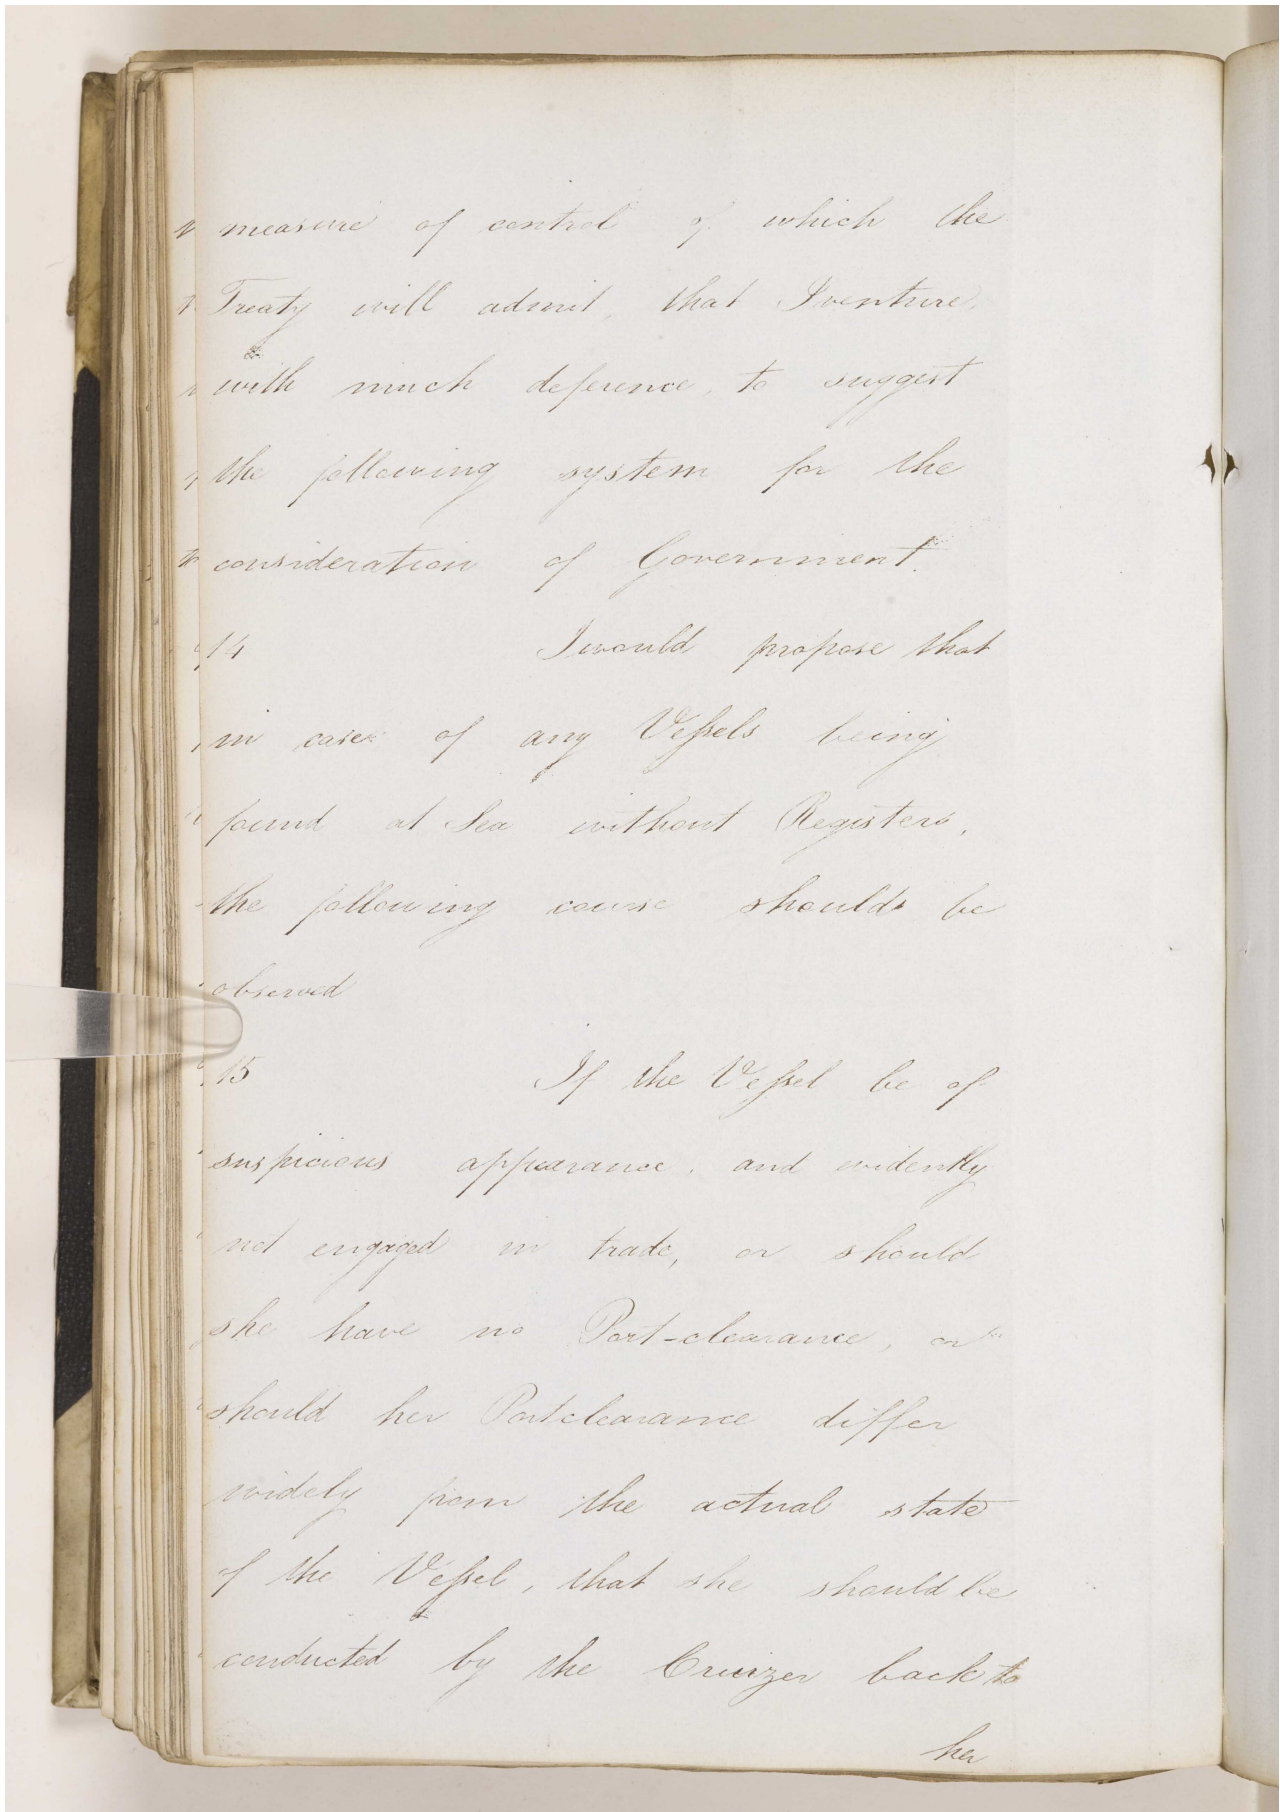 measure of control of which the
Treaty will admit, that I venture,
with much deference, to suggest
the following system for the
consideration of Government.
14 I would propose that
in case of any Vessels being
found at Sea without Registers,
the following course should be
observed
15 If the Vessel be of
suspicious appearance, and evidently
not engaged in trade, or should
she have no Port-clearance, or
should her Portclearance differ
widely from the actual state
of the Vessel, that she should be
conducted by the Cruizer back to
her